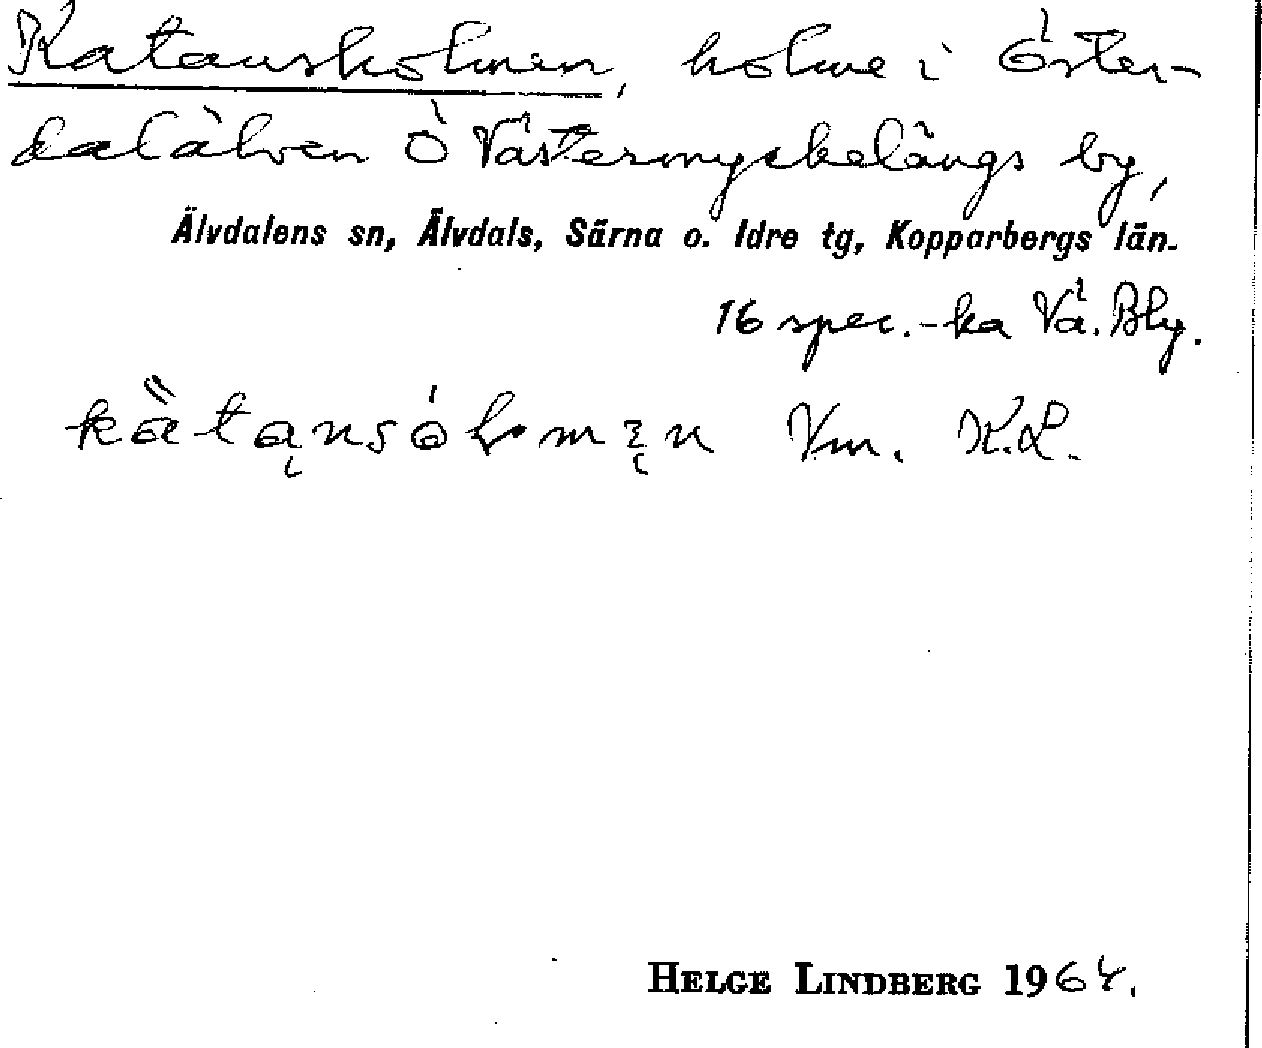 Katansholmen, holme i Öster-
dalälven Ö Västermyckelängs by,
Älvdalens sn, Älvdals, Särna o. Idre tg, Kopparbergs län.
16 spec.-ka Vä. Bly.
Vm. K.L.
HELGE LINDBERG 1964.